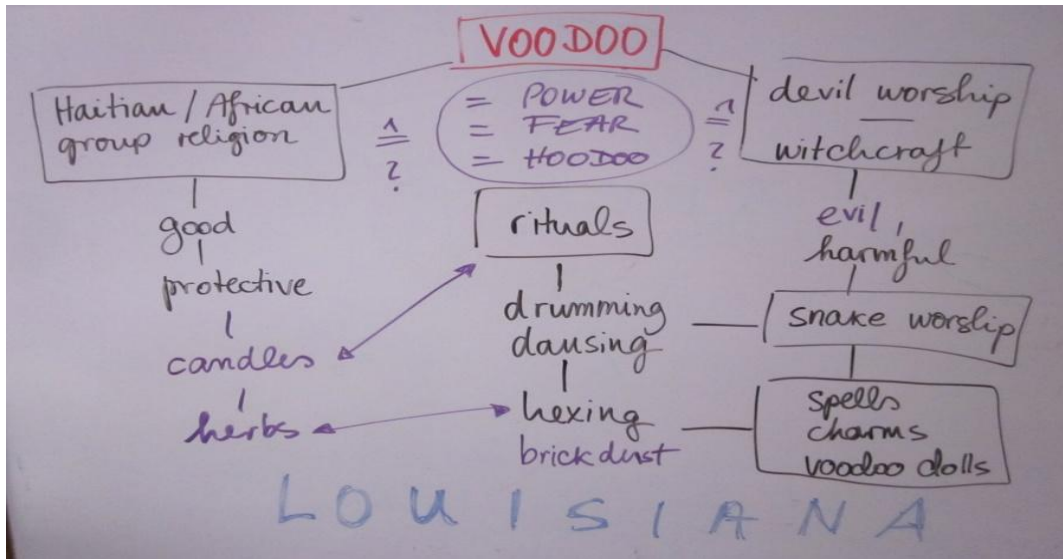 VOODOO
Haitian / African
group religion
= POWER
= FEAR
= HOODOO
1
=
?
1
=
?
devil worship
witchcraft
good
protective
candles
herbs
rituals
drumming
dausing
hexing
brick dust
evil,
harmful
snake worship
spells
charms
voodoo dolls
LOUISIANA